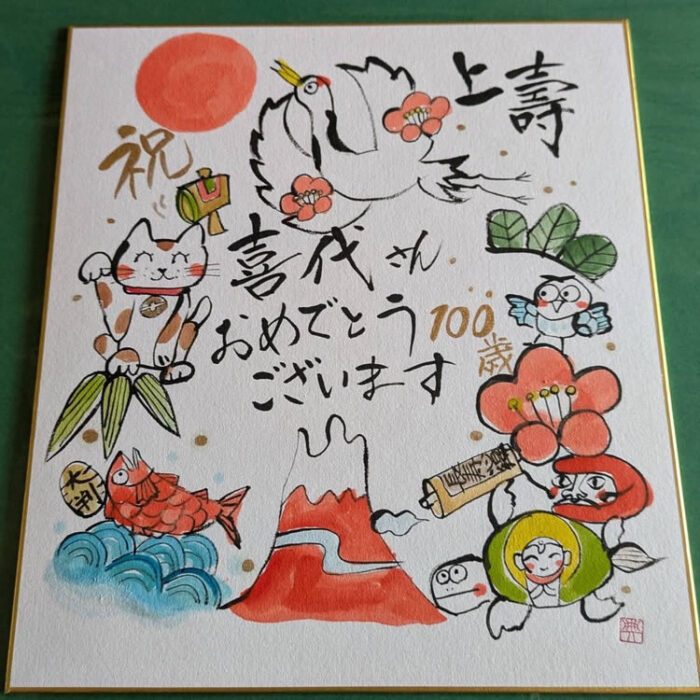 上壽
祝
喜代さん
おめでとう
ございます
100
歳
大判